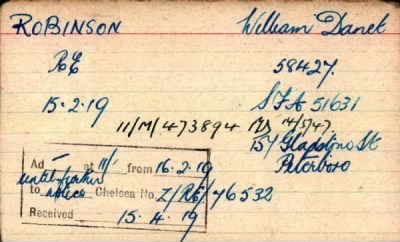 ROBINSON William Danet
RE 58427.
15.2.19 SFA 51631
11/M/473894 14/5/47
154 Gladstone St
Peterboro
Ad — at 11/- from 16.2.19
until further
to notice Chelsea No. Z/RE/76532
Received 15.4.19